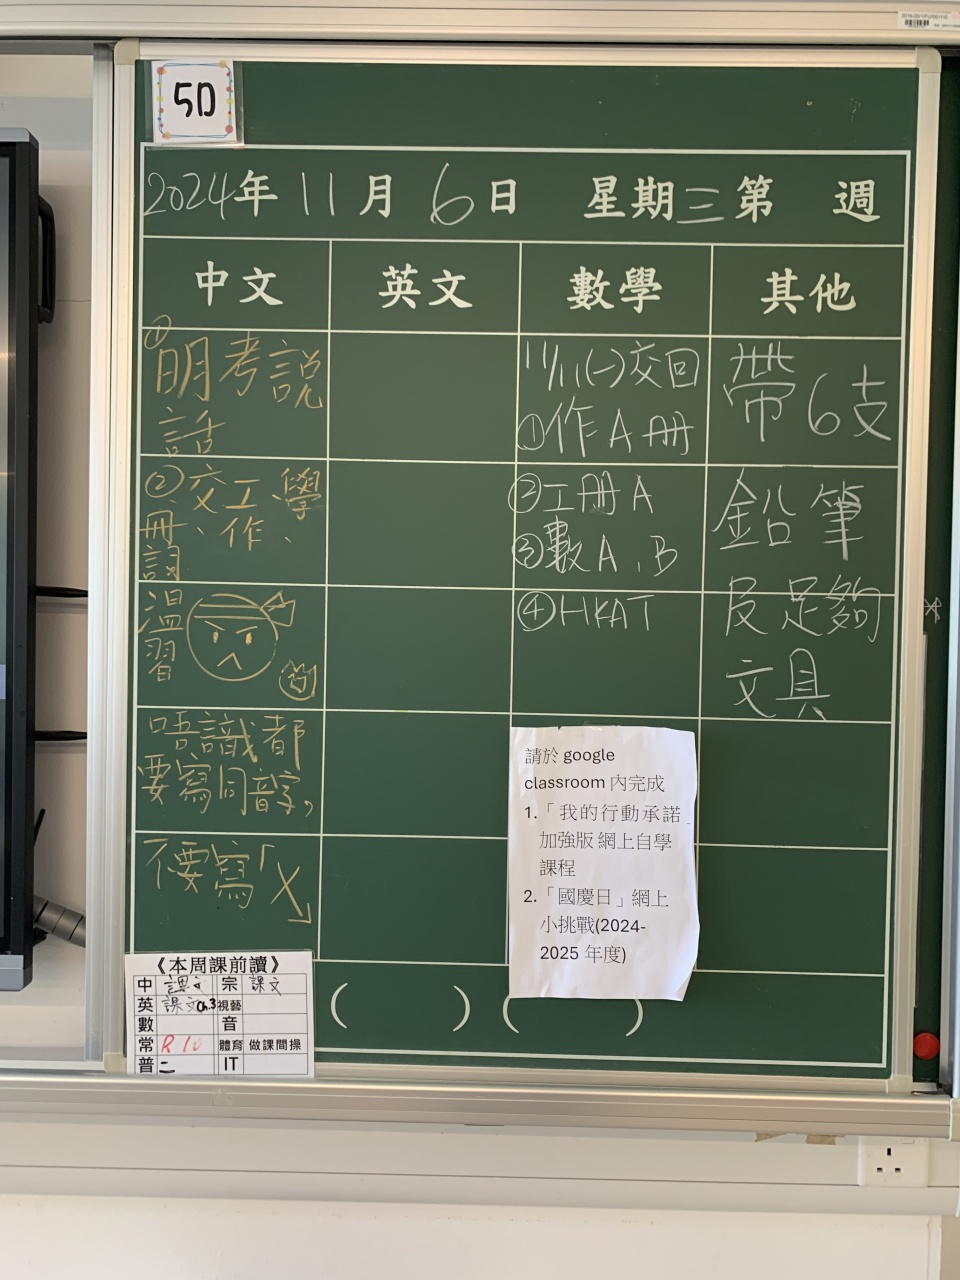 5D
2024年 11月 6日 星期三第 週
中文 英文 數學 其他
①明考說
話
②交工、學
冊、作、
詞
溫
習
唔識都
要寫同音字,
不要寫「X」
11/11(一)交回
①作A冊
②工冊A
③數A、B
④HKAT
帶6支
鉛筆
及足夠
文具
請於 google
classroom 內完成
1.「我的行動承諾
加強版 網上自學
課程
2.「國慶日」網上
小挑戰(2024-
2025 年度)
( ) ( )
《本周課前讀》
中 課文 宗 課文
英 課文 Ch.3 視藝
數 音
常 R 10 體育 做課間操
普 二 IT